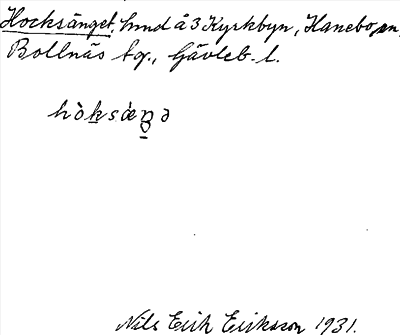 Hocksänget, hmd å 3 Kyrkbyn, Hanebo sn,
Bollnäs tg., Gävleb. l.
hòksæ̀ŋə
Nils Erik Eriksson 1931.